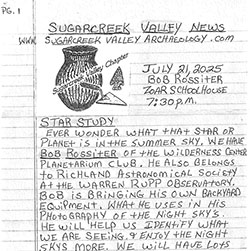 PG. 1
SUGARCREEK VALLEY NEWS
WWW. SUGARCREEK VALLEY ARCHAEOLOGY.COM
Sugarcreek Valley Chapter
JULY 21, 2025
BOB ROSSITER
ZOAR SCHOOLHOUSE
7:30 P.M.
STAR STUDY
EVER WONDER WHAT THAT STAR OR
PLANET IS IN THE SUMMER SKY. WE HAVE
BOB ROSSITER OF THE WILDERNESS CENTER
PLANETARIUM CLUB. HE ALSO BELONGS
TO RICHLAND ASTRONOMICAL SOCIETY
AT THE WARREN RUPP OBSERVATORY.
BOB IS BRINGING HIS OWN BACKYARD
EQUIPMENT. WHAT HE USES IN HIS
PHOTOGRAPHY OF THE NIGHT SKYS.
HE WILL HELP US IDENTIFY WHAT
WE ARE SEEING & ENJOY THE NIGHT
SKYS MORE. WE WILL HAVE LOTS